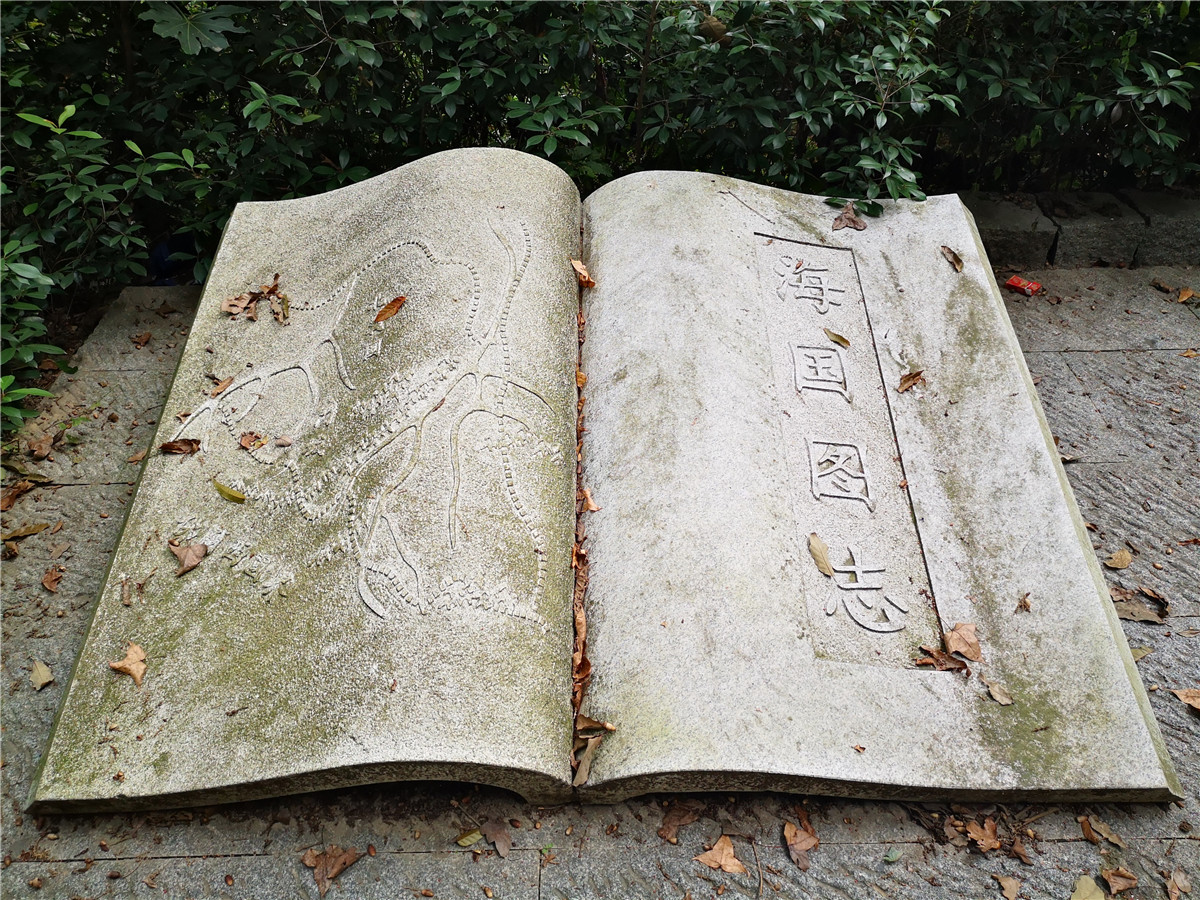 海国图志